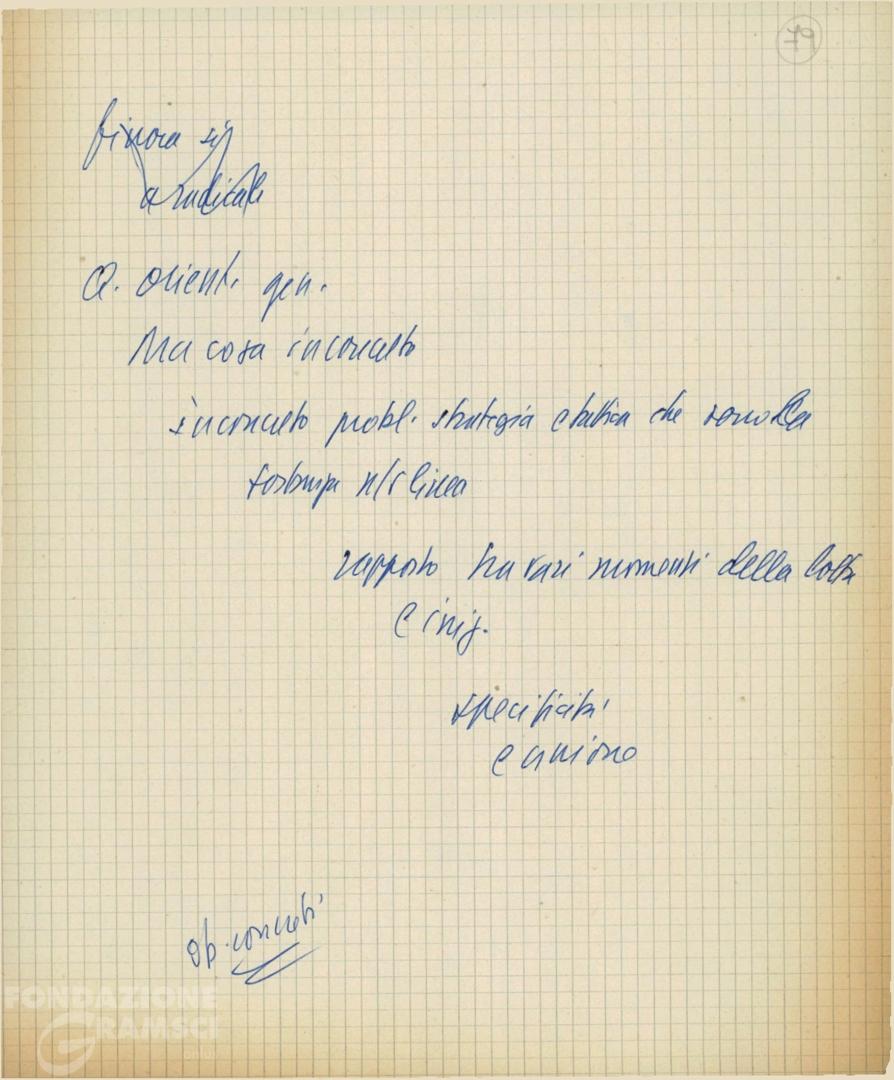 79
finora si
a radicale
Q. orient. gen.
Ma cosa in concreto
in concreto probl. strategia e tattica che sono la
sostanza n/s linea
rapporto tra vari momenti della lotta
e iniz.
specificità
e unione
ob. concreti
FONDAZIONE
GRAMSCI